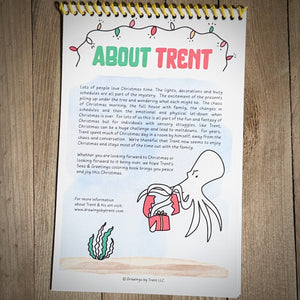 ABOUT TRENT
Lots of people love Christmas time. The lights, decorations and busy
schedules are all part of the mystery. The excitement of the presents
piling up under the tree and wondering what each might be. The chaos
of Christmas morning, the full house with family, the changes in
schedules and then the emotional and physical let-down when
Christmas is over. For lots of us this is all part of the fun and fantasy of
Christmas but for individuals with sensory struggles, like Trent,
Christmas can be a huge challenge and lead to meltdowns. For years,
Trent spent much of Christmas day in a room by himself, away from the
chaos and conversation. We're thankful that Trent now seems to enjoy
Christmas and stays most of the time out with the family.
Whether you are looking forward to Christmas or
looking forward to it being over, we hope Trent's
Seas & Greetings coloring book brings you peace
and joy this Christmas.
For more information
about Trent & his art visit:
www.drawingsbytrent.com
© Drawings by Trent LLC